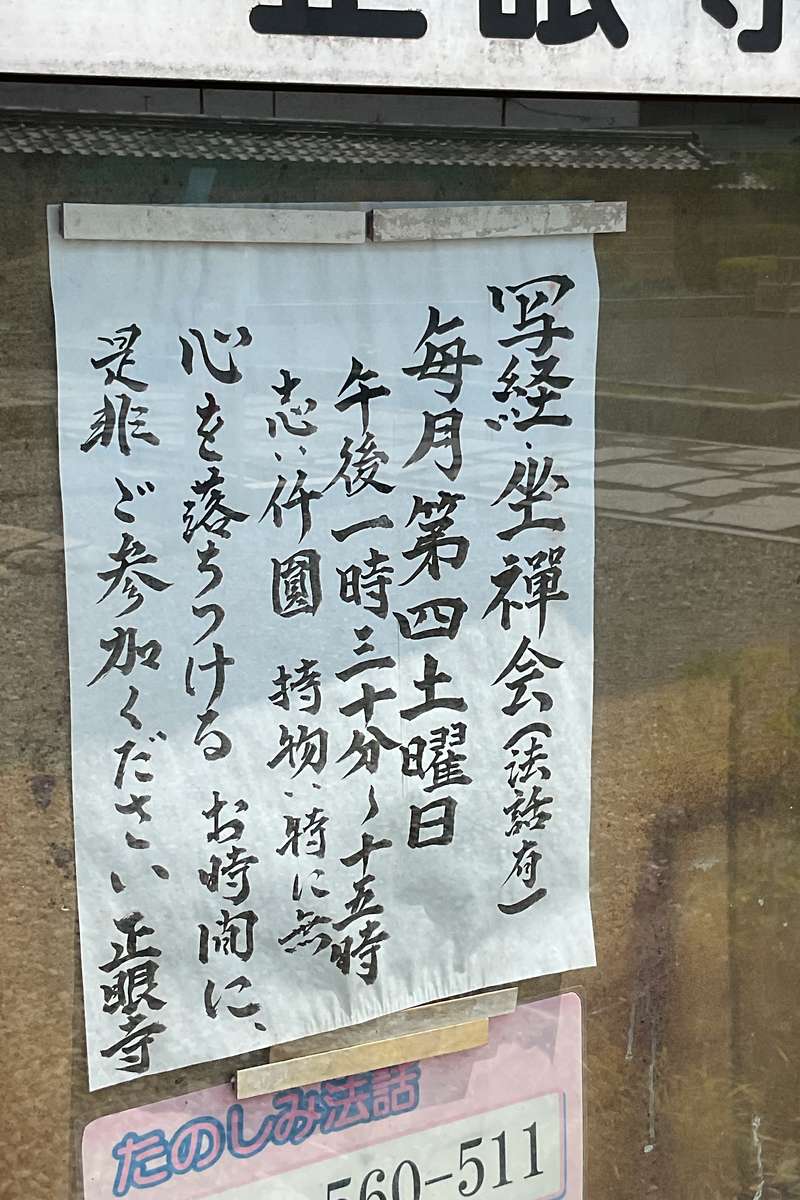 正眼寺
写経・坐禪会(法話有)
毎月第四土曜日
午後一時三十分～十五時
志:仟圓 持物:特に無
心を落ちつける お時間に、
是非ご参加ください 正眼寺
たのしみ法話
560-511